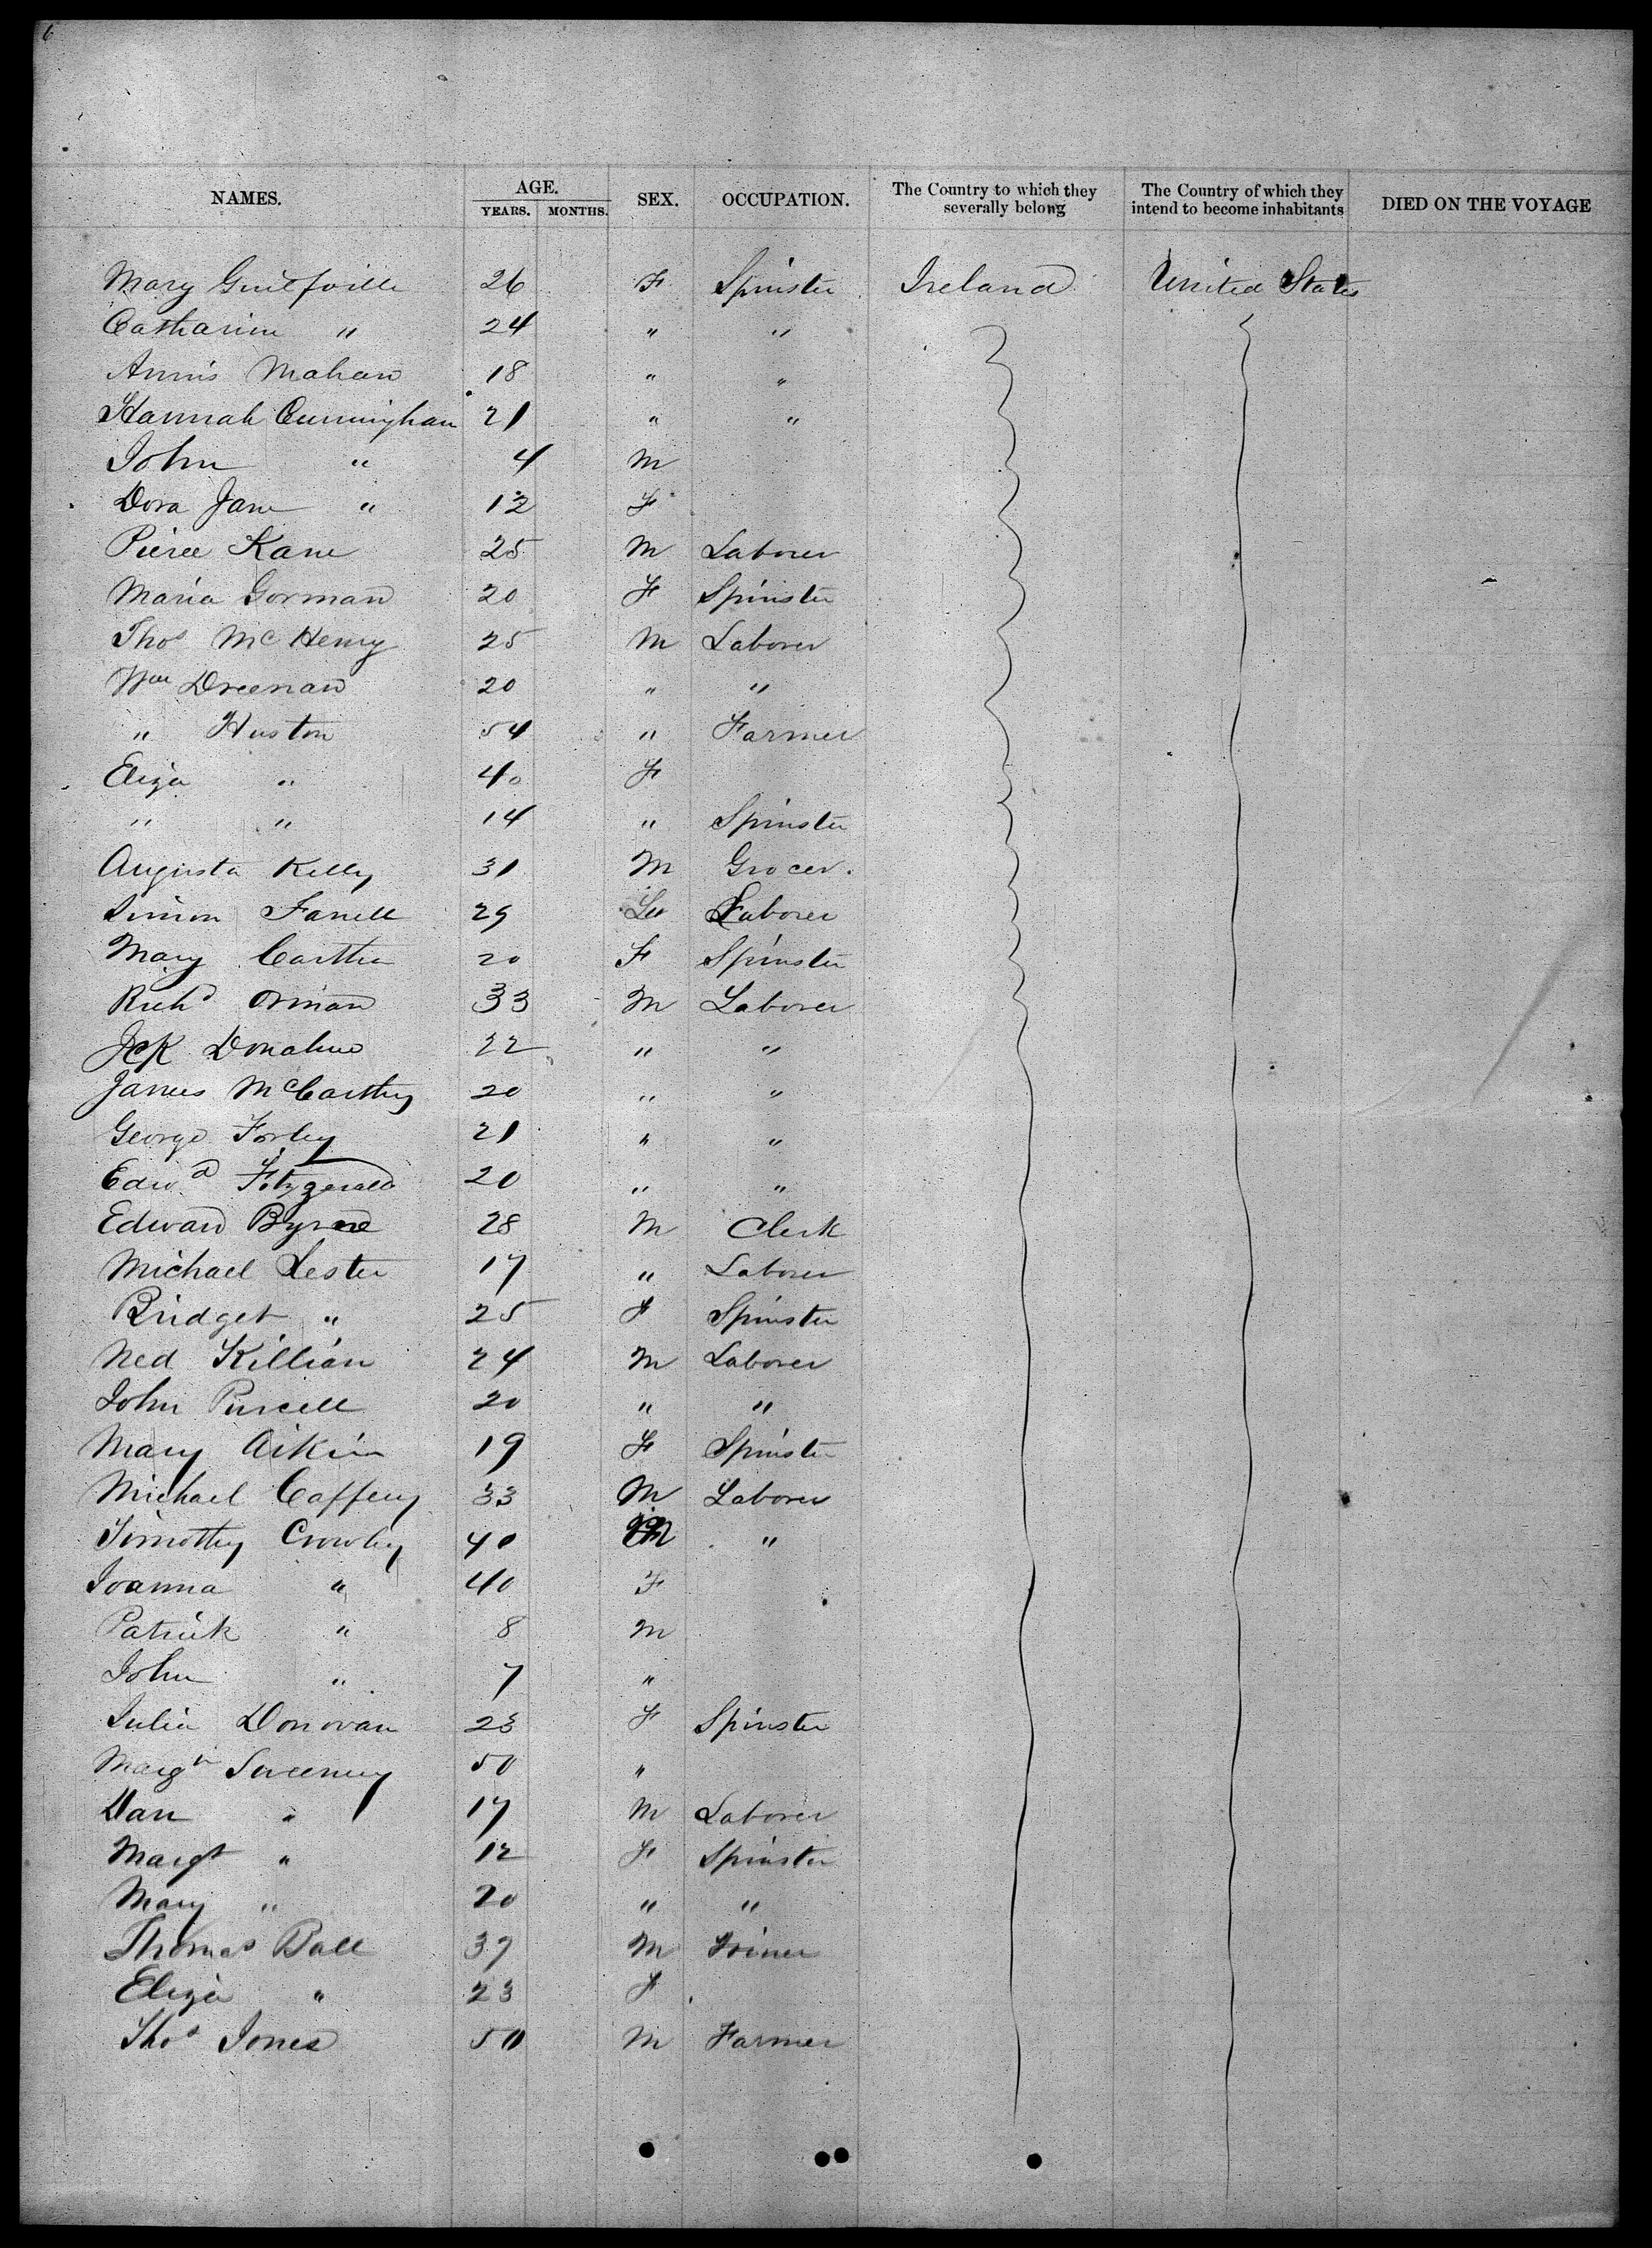 6
NAMES. AGE. YEARS. MONTHS. SEX. OCCUPATION. The Country to which they severally belong The Country of which they intend to become inhabitants DIED ON THE VOYAGE
Mary 26 F Spinster Ireland United States
Catharine " 24 " "
Annis Mahan 18 " "
Hannah Cunningham 21 " "
John " 4 M
Dora Jane " 12 F
Pierce Kane 25 M Laborer
Maria Gorman 20 F Spinster
Thos McHenry 25 M Laborer
Wm Dreenan 20 " "
" Huston 54 " Farmer
Eliza " 40 F
" " 14 " Spinster
Augusta Kelly 31 M Grocer.
Simon Farrell 29 Laborer
Mary Carthe 20 F Spinster
Richd Orman 33 M Laborer
Donahue 22 " "
James McCarthy 20 " "
George Forley 21 " "
Edwd Fitzgerald 20 " "
Edward Byrne 28 M Clerk
Michael Lester 17 " Laborer
Bridget " 25 F Spinster
Ned Killian 24 M Laborer
John Purcell 20 " "
Mary Aikin 19 F Spinster
Michael Caffery 33 M Laborer
Timothy Crowley 40 M "
Joanna " 40 F
Patrick " 8 M
John " 7 "
Julia Donovan 23 F Spinster
Margt Sweeney 50 "
Dan " 17 M Laborer
Margt " 12 F Spinster
Mary " 20 " "
Thomas Ball 37 M Joiner
Eliza " 23 F
Thos Jones 50 M Farmer